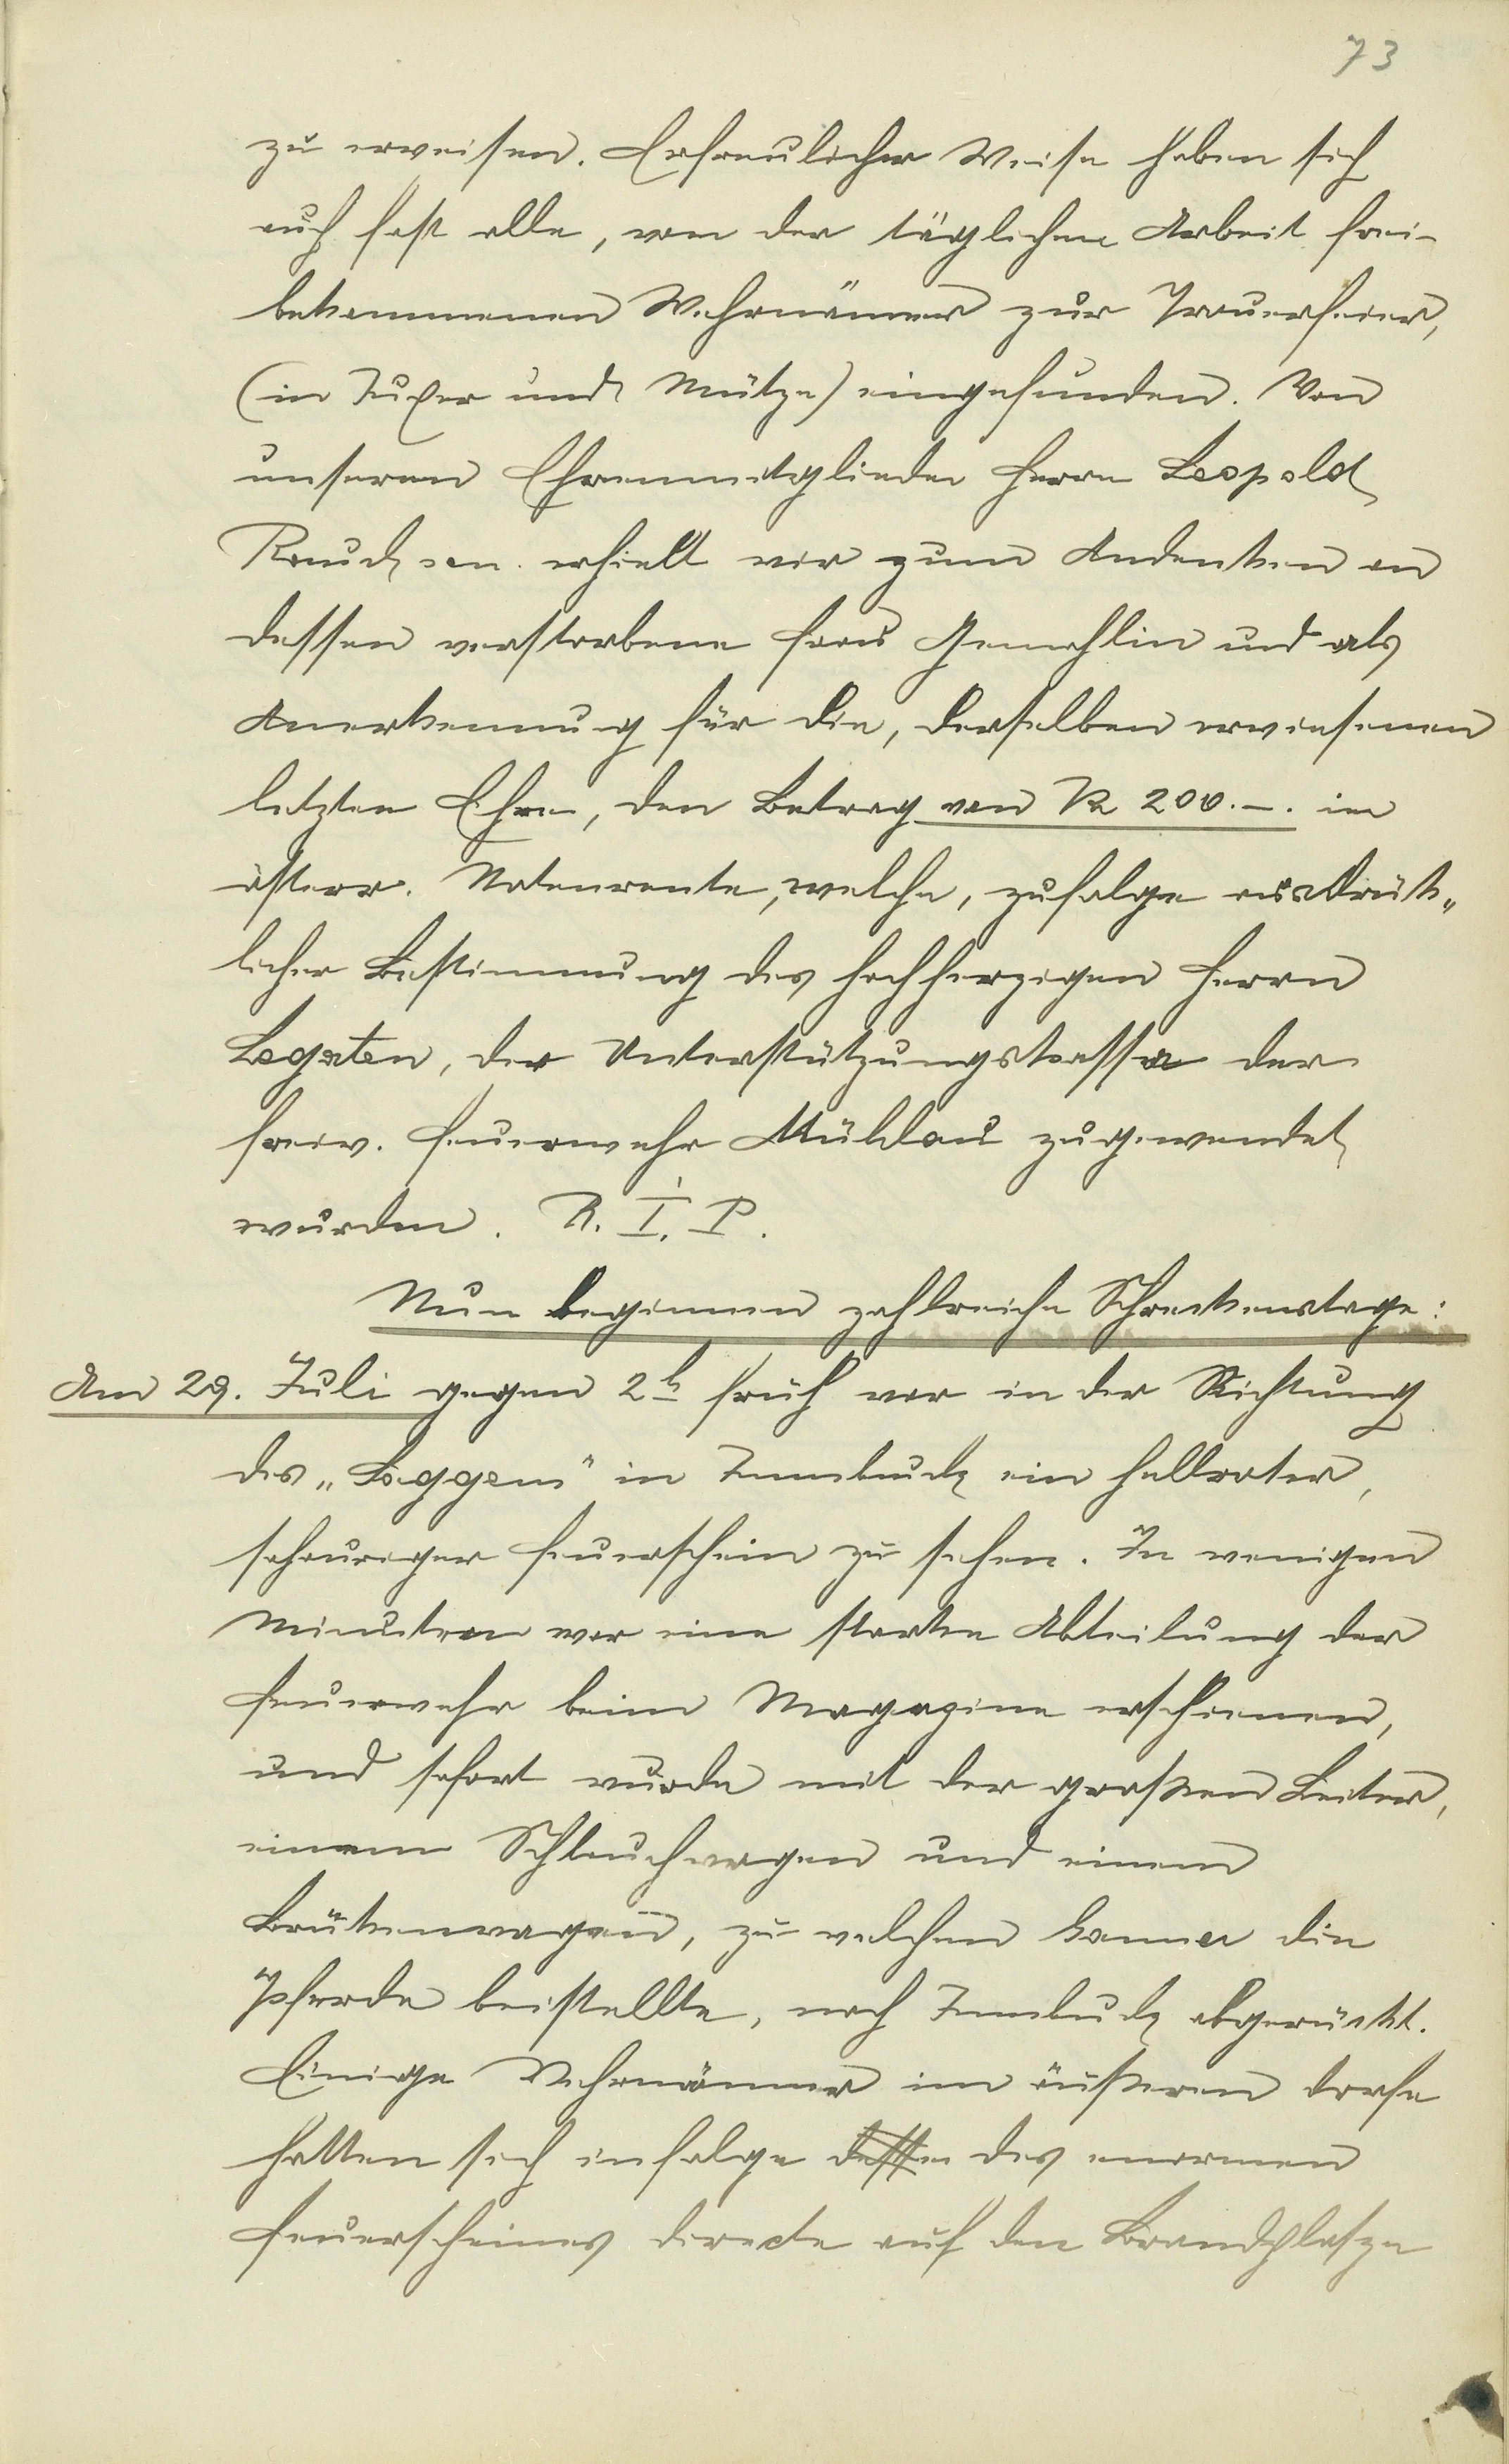 73
zu erweisen. Erfreulicher Weise haben sich
auch fast alle, von der täglichen Arbeit frei-
bekommenen Wehrmänner zur Trauerfeier,
(in Juxer und Mütze) eingefunden. Von
unserem Ehrenmitgliede Herrn Leopold
Rauch sen. erhielt wir zum Andenken an
dessen verstorbene Frau Gemahlin und als
Anerkennung für die, derselben erwiesenen
letzten Ehre, den Betrag von K 200.-. in
österr. Notenrente, welche, zufolge ausdrück„
licher Bestimmung des hochherzigen Herrn
Legaten, der Unterstützungskassa der
freiw. Feuerwehr Mühlau zugewendet
wurden. R. I. P.
Nun beginnen zahlreiche Schreckenstage:
Am 29. Juli gegen 2h früh war in der Richtung
des „Saggen" in Innsbruck ein hellroter,
schauriger Feuerschein zu sehen. In wenigen
Minuten war eine starke Abteilung der
Feuerwehr beim Magazine erschienen,
und sofort wurde mit der großen Leiter,
einem Schlauchwagen und einem
Brückenwagen, zu welchen die
Pferde beistellte, nach Innsbruck abgerückt.
Einige Wehrmänner im äußeren Dorfe
hatten sich infolge dessen des enormen
Feuerscheines directe auf den Brandplatze